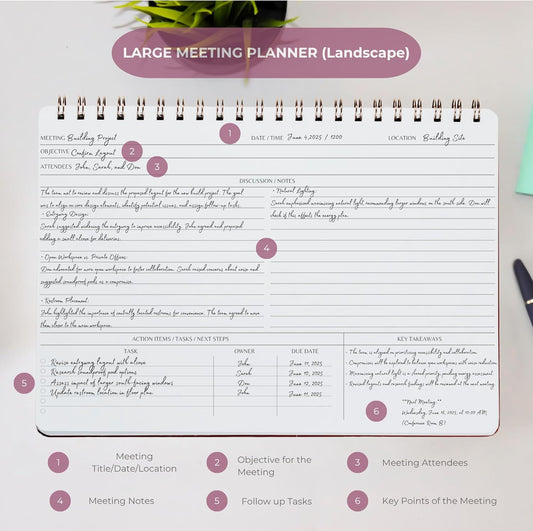 LARGE MEETING PLANNER (Landscape)
MEETING Building Project
1
DATE / TIME June 4, 2025 / 1200
LOCATION Building Site
OBJECTIVE Confirm Layout
2
ATTENDEES John, Sarah, and Don
3
DISCUSSION / NOTES
The team met to review and discuss the proposed layout for the new build project. The goal
was to align on core design elements, identify potential issues, and assign follow-up tasks.
- Entryway Design:
Sarah suggested widening the entryway to improve accessibility. John agreed and proposed
adding a small alcove for deliveries.
- Open Workspace vs. Private Offices:
Don advocated for more open workspace to foster collaboration. Sarah raised concerns about noise and
suggested soundproof pods as a compromise.
- Restroom Placement:
John highlighted the importance of centrally located restrooms for convenience. The team agreed to move
them closer to the main workspace.
- Natural Lighting:
Sarah emphasized maximizing natural light, recommending larger windows on the south side. Don will
check if this affects the energy plan.
4
ACTION ITEMS / TASKS / NEXT STEPS
TASK OWNER DUE DATE
Revise entryway layout with alcove John June 11, 2025
Research soundproof pod options Sarah June 12, 2025
Assess impact of larger south-facing windows Don June 12, 2025
Update restroom location in floor plan John June 11, 2025
5
KEY TAKEAWAYS
- The team is aligned on prioritizing accessibility and collaboration.
- Compromises will be explored to balance open workspaces with noise reduction.
- Maximizing natural light is a shared priority, pending energy assessment.
- Revised layouts and research findings will be reviewed at the next meeting.
**Next Meeting:**
Wednesday, June 18, 2025, at 10:00 AM
(Conference Room B)
6
1 Meeting
Title/Date/Location
2 Objective for the
Meeting
3 Meeting Attendees
4 Meeting Notes
5 Follow up Tasks
6 Key Points of the Meeting